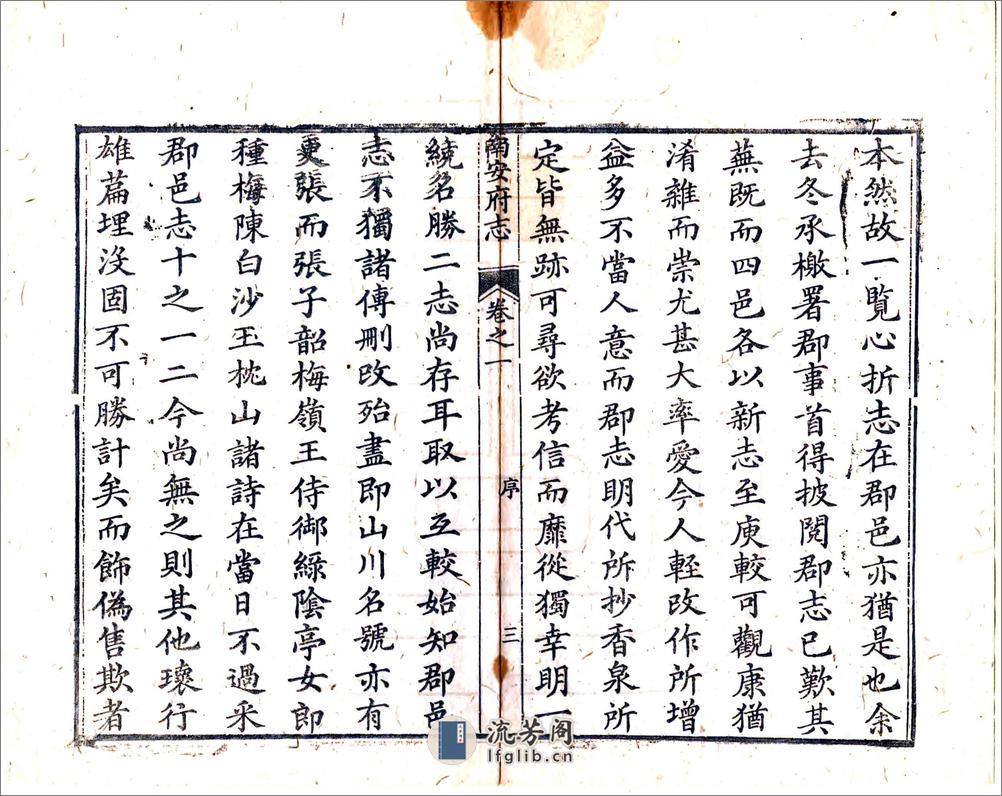 本然故一覧心折志在郡邑亦猶是也余
去冬承檄署郡事首得披閱郡志已歎其
蕪既而四邑各以新志至庾較可觀康猶
淆雜而崇尤甚大率愛今人輕改作所增
益多不當人意而郡志明代所抄香泉所
定皆無跡可尋欲考信而靡從獨幸明一
南安府志
卷之一
序
三
統名勝二志尚存耳取以互較始知郡邑
志不獨諸傳刪改殆盡即山川名號亦有
更張而張子韶梅嶺王侍御綠陰亭女郎
種梅陳白沙玉枕山諸詩在當日不過采
郡邑志十之一二今尚無之則其他瓌行
雄篇埋沒固不可勝計矣而飾偽售欺者
流芳阁
lfglib.cn